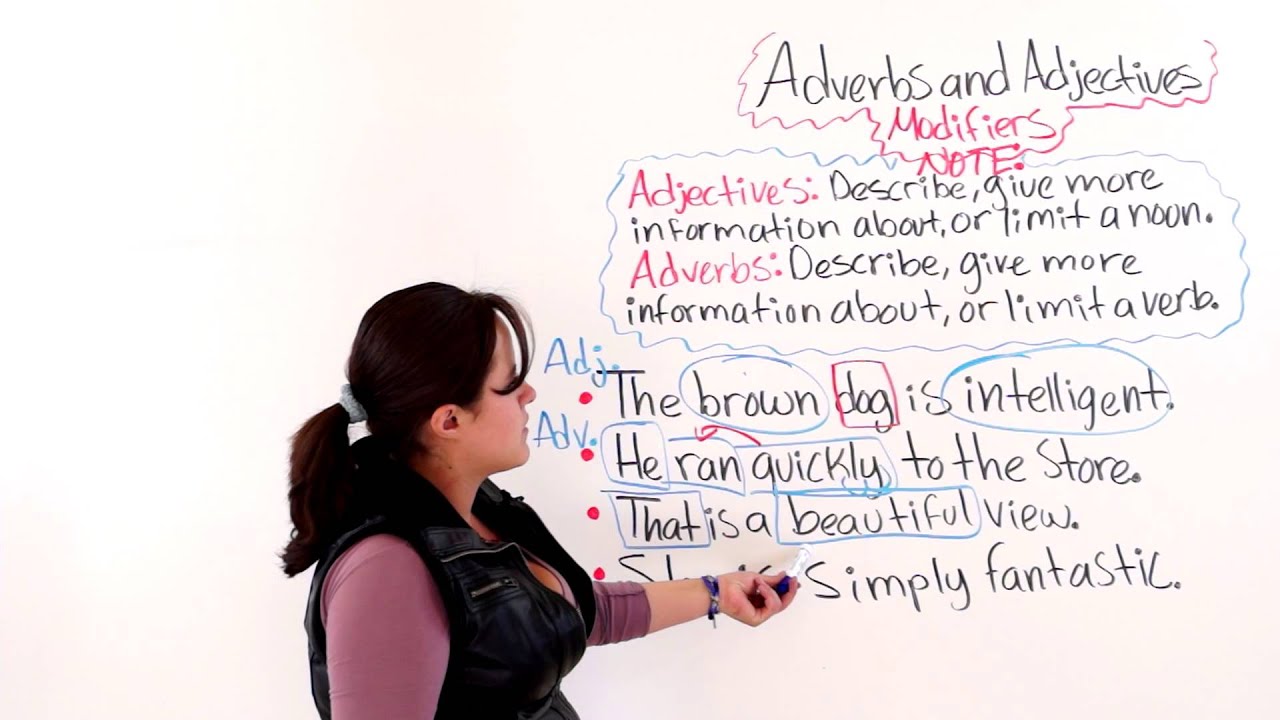 Adverbs and Adjectives
Modifiers
NOTE:
Adjectives: Describe, give more
information about, or limit a noun.
Adverbs: Describe, give more
information about, or limit a verb.
Adj.
The brown dog is intelligent.
Adv.
He ran quickly to the Store.
That is a beautiful view.
simply fantastic.